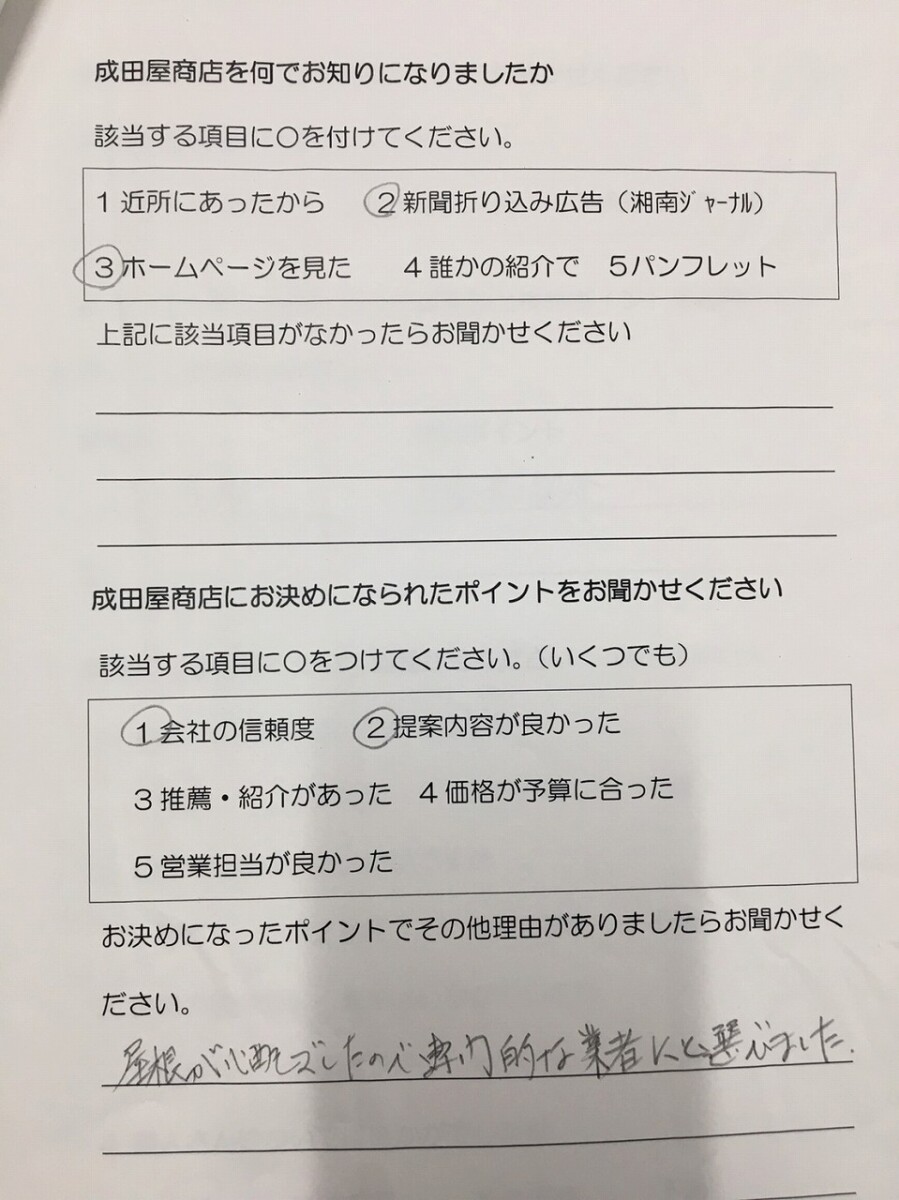 成田屋商店を何でお知りになりましたか
該当する項目に〇を付けてください。
1 近所にあったから　2 新聞折り込み広告（湘南ｼﾞｬｰﾅﾙ）
3 ホームページを見た　4 誰かの紹介で　5パンフレット
上記に該当項目がなかったらお聞かせください
成田屋商店にお決めになられたポイントをお聞かせください
該当する項目に〇をつけてください。（いくつでも）
1 会社の信頼度　2 提案内容が良かった
3 推薦・紹介があった　4 価格が予算に合った
5 営業担当が良かった
お決めになったポイントでその他理由がありましたらお聞かせく
ださい。
屋根が心配でしたので専門的な業者にと選びました.